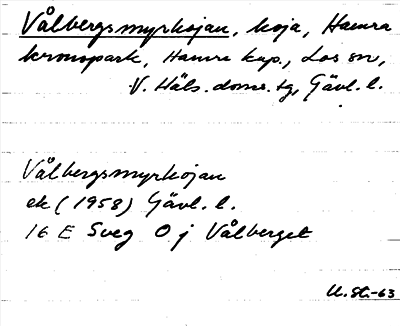 Vålbergsmyrkojan, koja, Hamra
kronopark, Hamra kap., Los sn,
V. Häls. doms. tg, Gävl. l.
Vålbergsmyrkojan
ek (1958) Gävl. l.
16 E Sveg 0 j Vålberget
U. St.-63